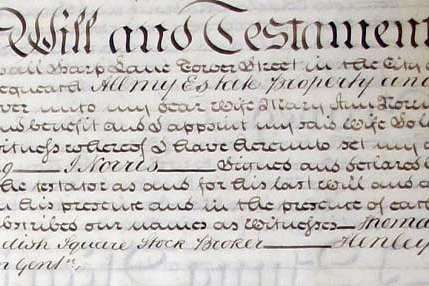 Will and Testament
Harp Lane Tower Street in the City
All my Estate Property and
unto my dear Wife Mary Ann
benefit and I appoint my said Wife
Witness whereof I have hereunto set my
J Norris Signed and declared
the testator as and for his last Will and
in his presence and in the presence of
our names as Witnesses Thomas
dish Square Stock Broker Henley
n Gentn.